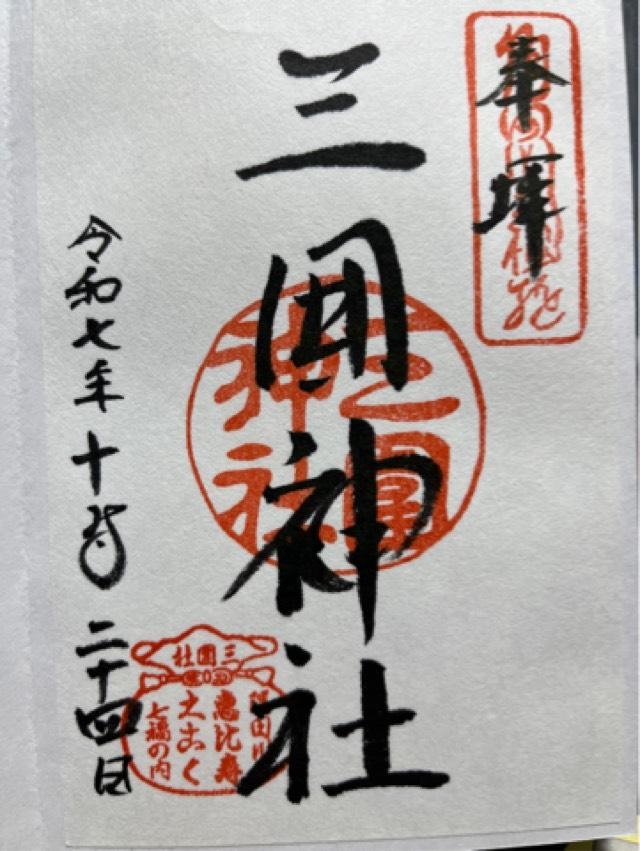 奉拝
三囲神社
三圍神社
令和七年十月二十四日
三圍社
隅田川
恵比寿
大こく
七福の内